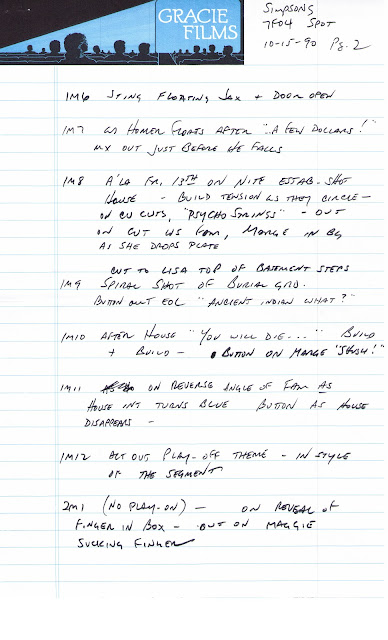 GRACIE
FILMS
SIMPSONS
7F04 SPOT
10-15-90 Pg. 2
1M6 STING FLOATING SAX + DOOR OPEN
1M7 WS HOMER FLOATS AFTER "..A FEW DOLLARS!"
MX OUT JUST BEFORE HE FALLS
1M8 A'LA FRI, 13TH ON NITE ESTAB. SHOT
HOUSE - BUILD TENSION WS THEY CIRCLE -
ON CU CUTS, "PSYCHO STRINGS" - OUT
ON CUT WS FAM, MARGE IN BG
AS SHE DROPS PLATE
CUT TO LISA TOP OF BASEMENT STEPS
1M9 SPIRAL SHOT OF BURIAL GRD.
BUTTON OUT EOL "ANCIENT INDIAN WHAT?"
1M10 AFTER HOUSE "YOU WILL DIE..." BUILD
+ BUILD - BUTTON ON MARGE "SHUSH!"
1M11 ON REVERSE ANGLE OF FAM AS
HOUSE INT TURNS BLUE BUTTON AS HOUSE
DISAPPEARS -
1M12 ACT OUT PLAY-OFF THEME - IN STYLE
OF THE SEGMENT
2M1 (NO PLAY-ON) - ON REVEAL OF
FINGER IN BOX - OUT ON MAGGIE
SUCKING FINGER